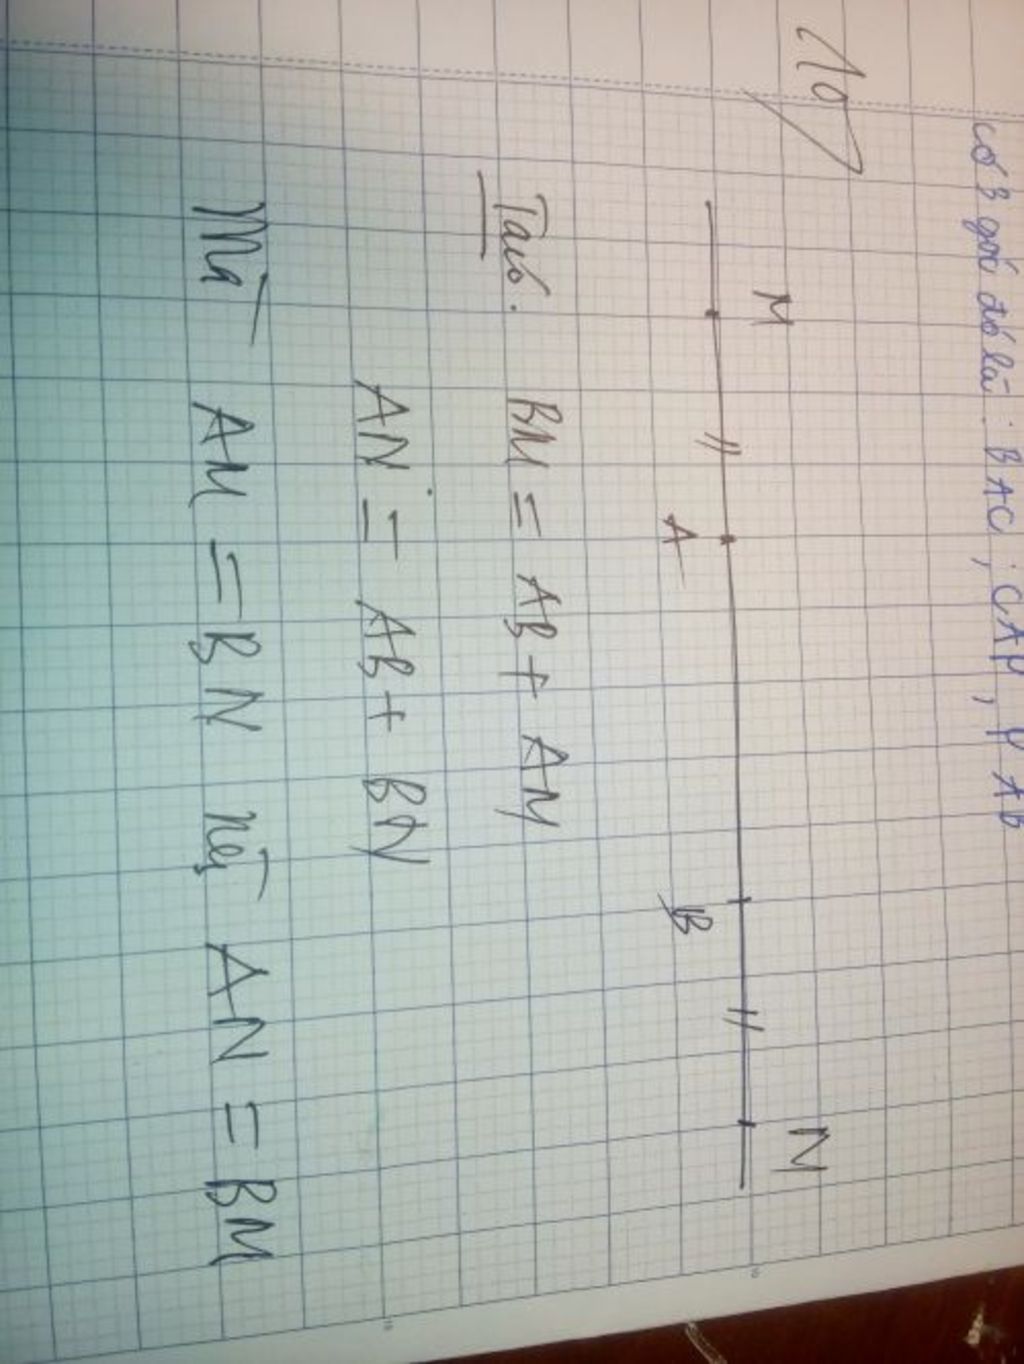 có 3 góc đó là : BAC ; CAP ; PAB
10
M
N
A
B
Ta có : BM = AB + AM
AN = AB + BN
Mà AM = BN nên AN = BM